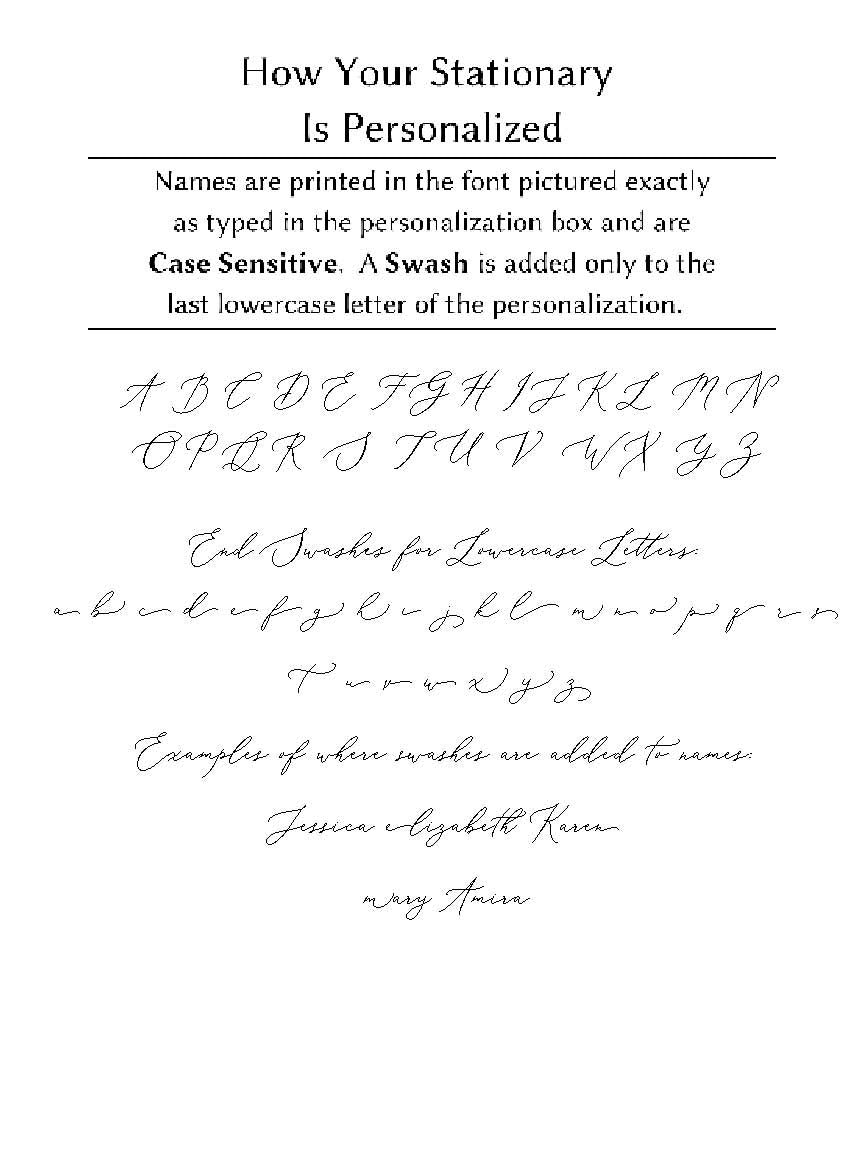 How Your Stationary
Is Personalized
Names are printed in the font pictured exactly
as typed in the personalization box and are
Case Sensitive. A Swash is added only to the
last lowercase letter of the personalization.
A B C D E F G H I J K L M N
O P Q R S T U V W X Y Z
End Swashes for Lowercase Letters:
a b c d e f g h i j k l m n o p q r s
t u v w x y z
Examples of where swashes are added to names:
Jessica elizabeth Karen
mary Amira